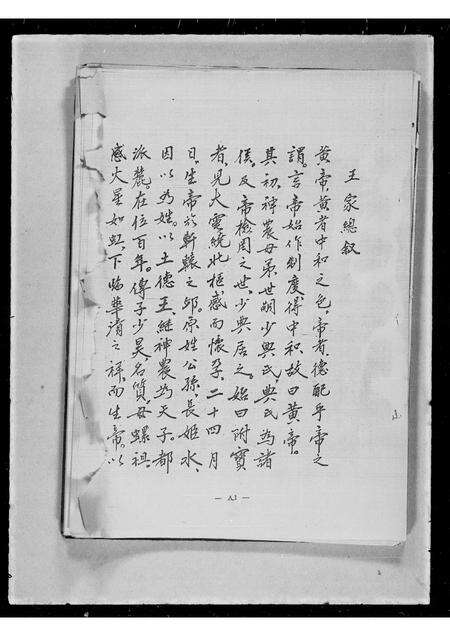 王家總叙
黄帝，黄者中和之色，帝者，德配乎帝之
謂。言帝始作制度得中和，故曰黄帝。
其初，神農母弟，世嗣少典氏，典氏為諸
侯，及帝檢罔之世，少典居之，始曰附寶
者，見大電繞北樞，感而懷孕，二十四月
日，生帝於軒轅之邱。原姓公孫，長姬水，
因以為姓。以土德王，継神農為天子。都
派麓。在位百年。傳子少昊，名質，母螺祖，
感大星如虹，下臨華渚之祥，而生帝。以